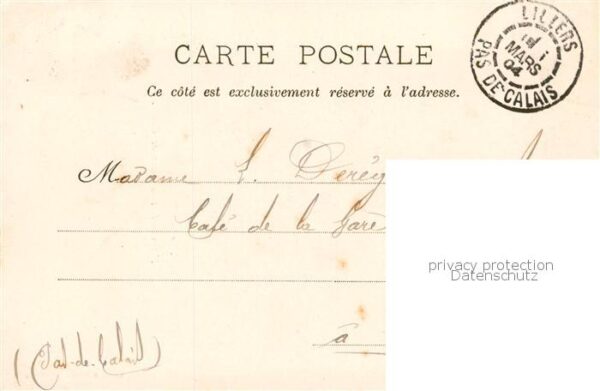 CARTE POSTALE
LILLERS
MARS
04
PAS DE CALAIS
Ce côté est exclusivement réservé à l'adresse.
Madame
Café de la Gare
privacy protection
Datenschutz
à
(Pas-de-Calais)